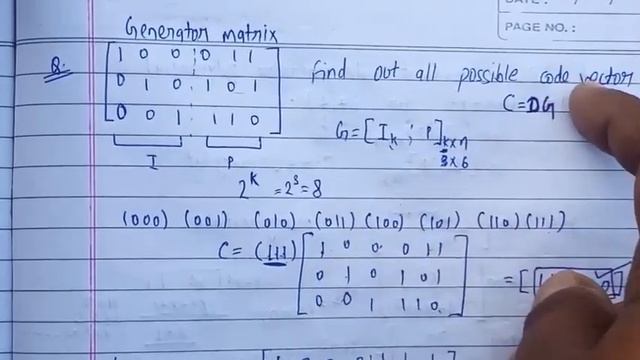 DATE: / /
PAGE NO.:
Generator matrix
Q. [ 1 0 0 : 0 1 1
0 1 0 : 1 0 1
0 0 1 : 1 1 0 ]
I P
Find out all possible code vector
C = DG
G = [ Ik ; P ]k×n
3×6
2^k = 2^3 = 8
(000) (001) (010) (011) (100) (101) (110) (111)
C = (111) [ 1 0 0 0 1 1
0 1 0 1 0 1
0 0 1 1 1 0 ] = [